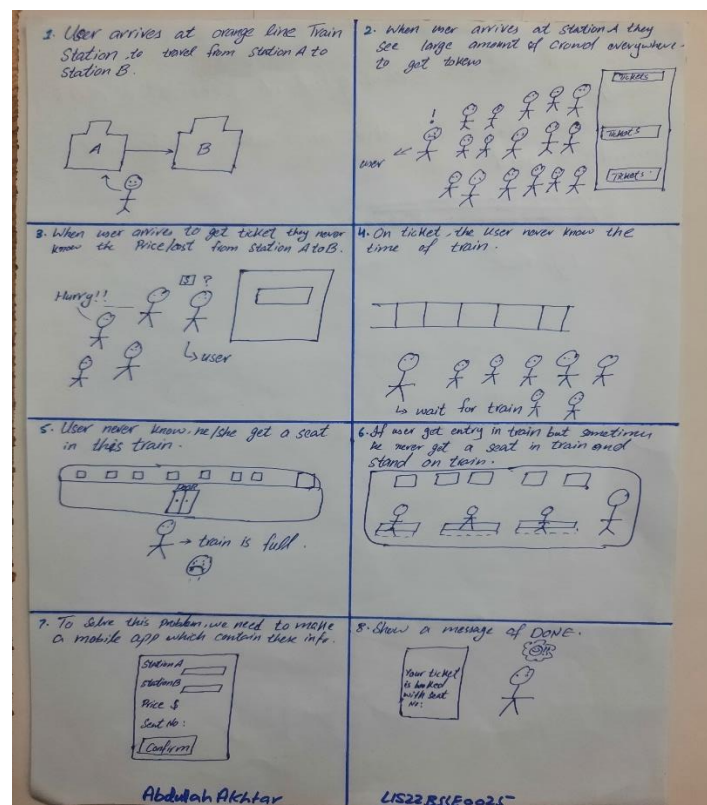 1. User arrives at orange line Train
Station, to travel from Station A to
Station B.
A
B
2. When user arrives at Station A they
see large amount of crowd everywhere
to get tokens
!
user
Tickets
Tickets
Tickets
3. When user arrives to get ticket they never
know the Price/cost from Station A to B.
Hurry!!
$ ?
user
4. On ticket, the user never know the
time of train.
wait for train
5. User never know, he/she get a seat
in this train.
train is full.
6. If user get entry in train but sometimes
he never got a seat in train and
stand on train.
7. To solve this problem, we need to make
a mobile app which contain these info.
Station A
Station B
Price $
Seat No:
Confirm
8. Show a message of DONE.
Your ticket
is booked
with seat
No:
Abdullah Akhtar